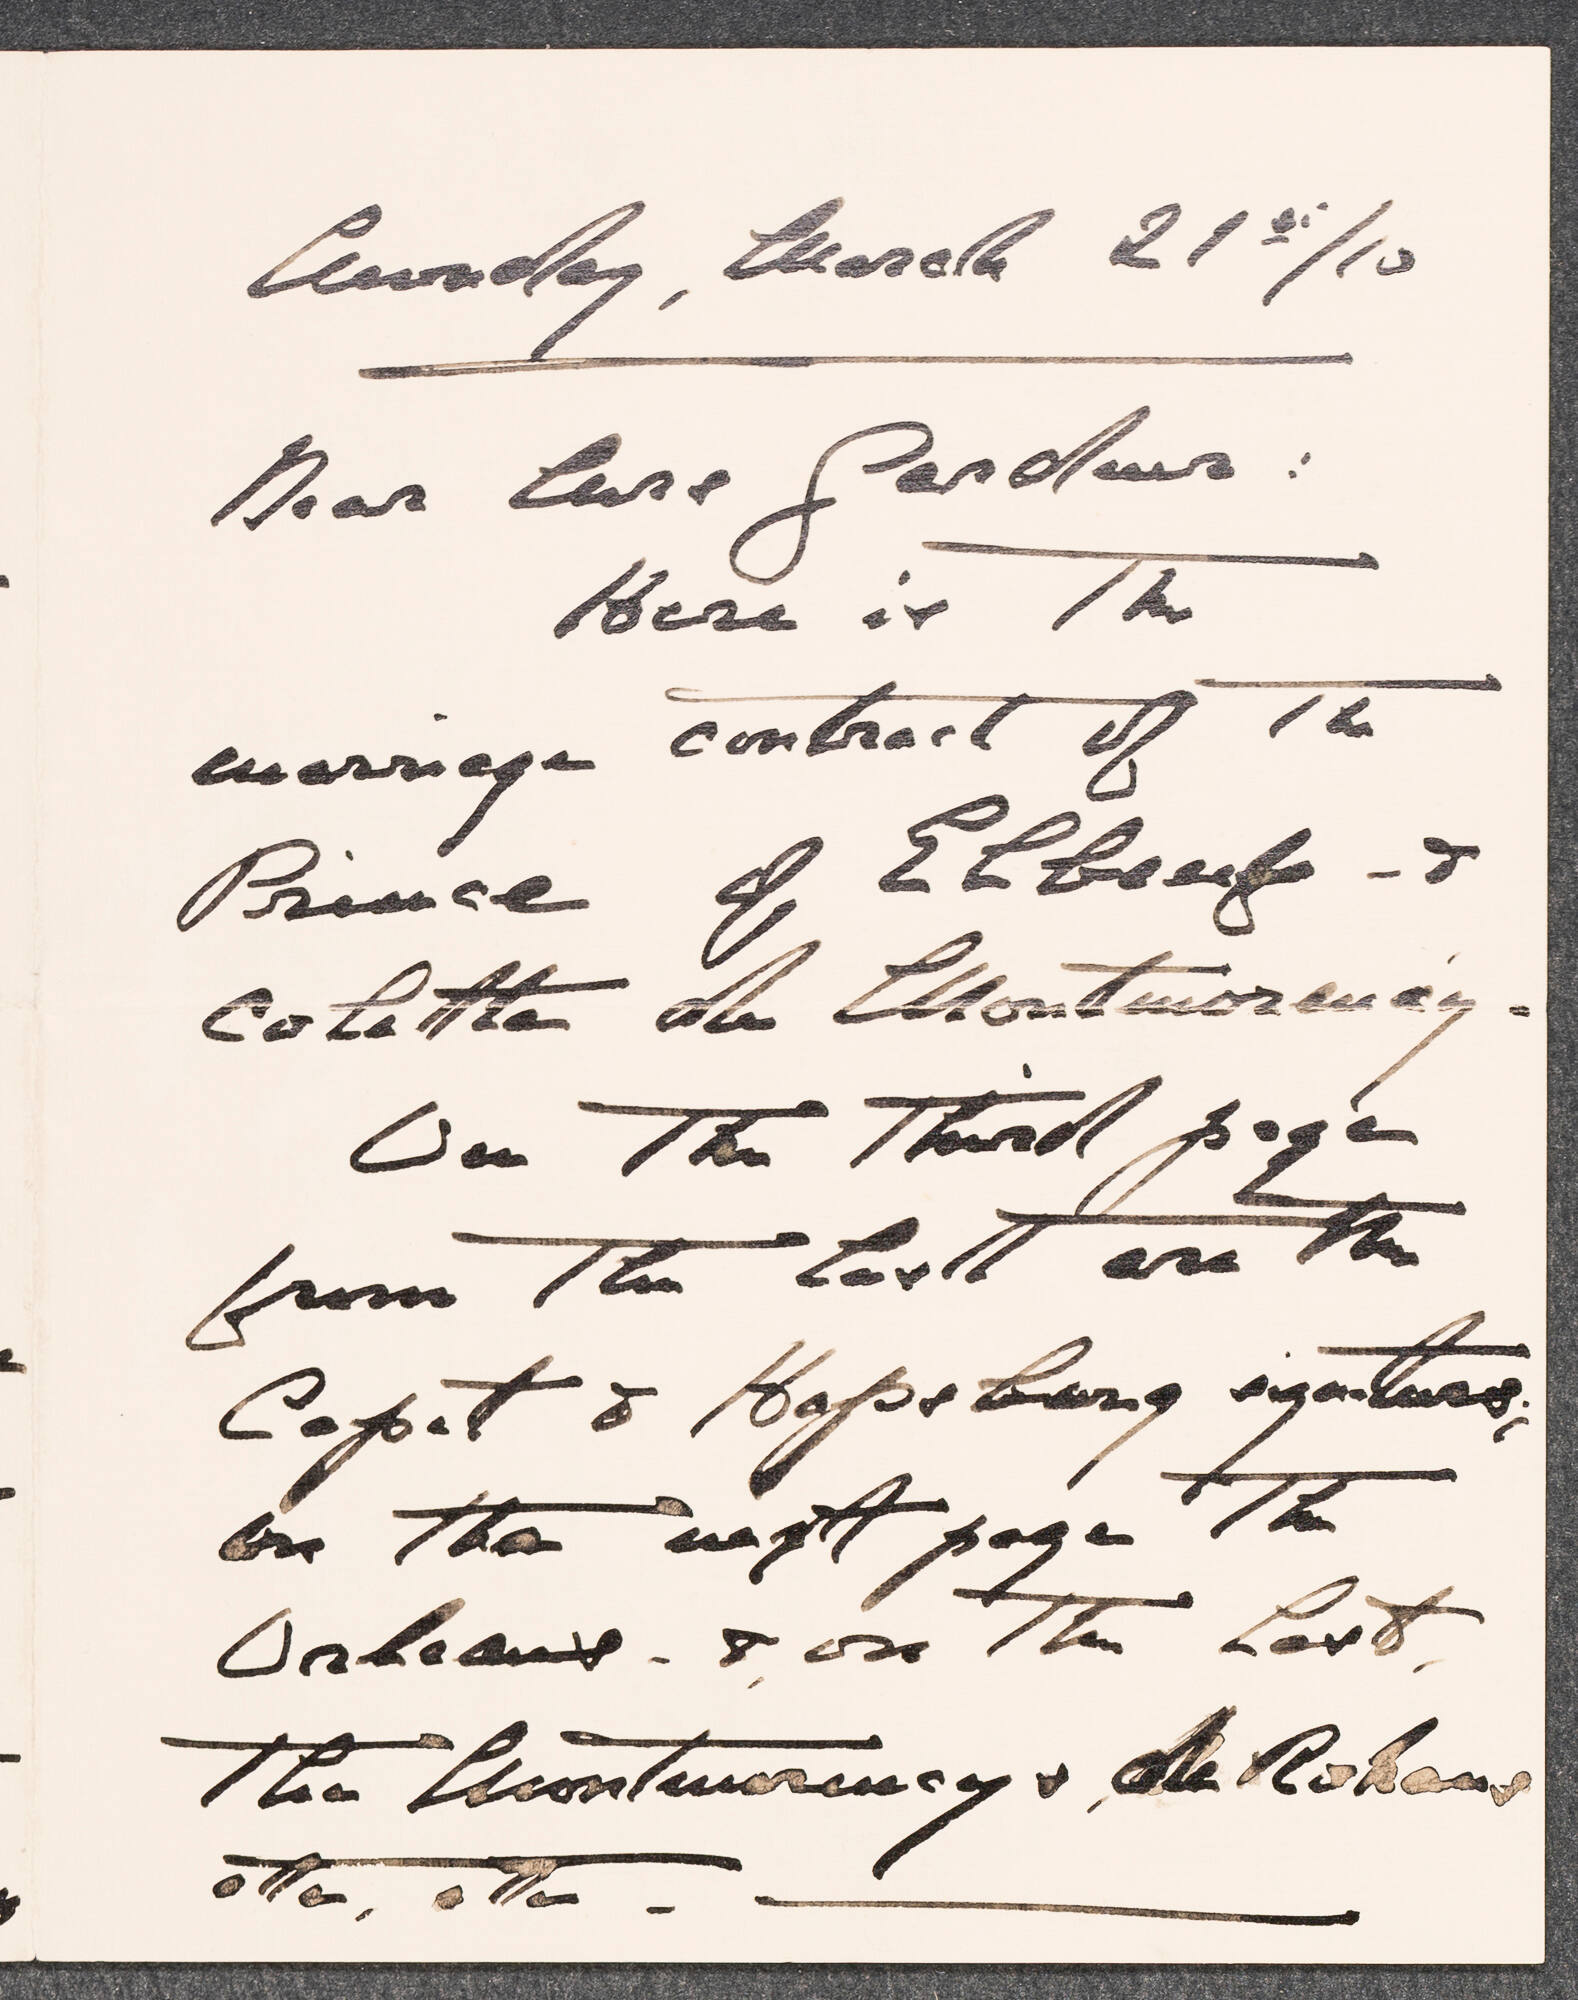 Monday, March 21st/10
Dear Mrs Gardner:
Here is the
marriage contract of the
Prince of Elbeuf - &
Colette de Montmorency.
On the third page
from the last are the
Capet & Hapsburg signatures;
on the next page the
Orleans - &, on the last,
the Montmorencys, de Rohans
etc, etc -